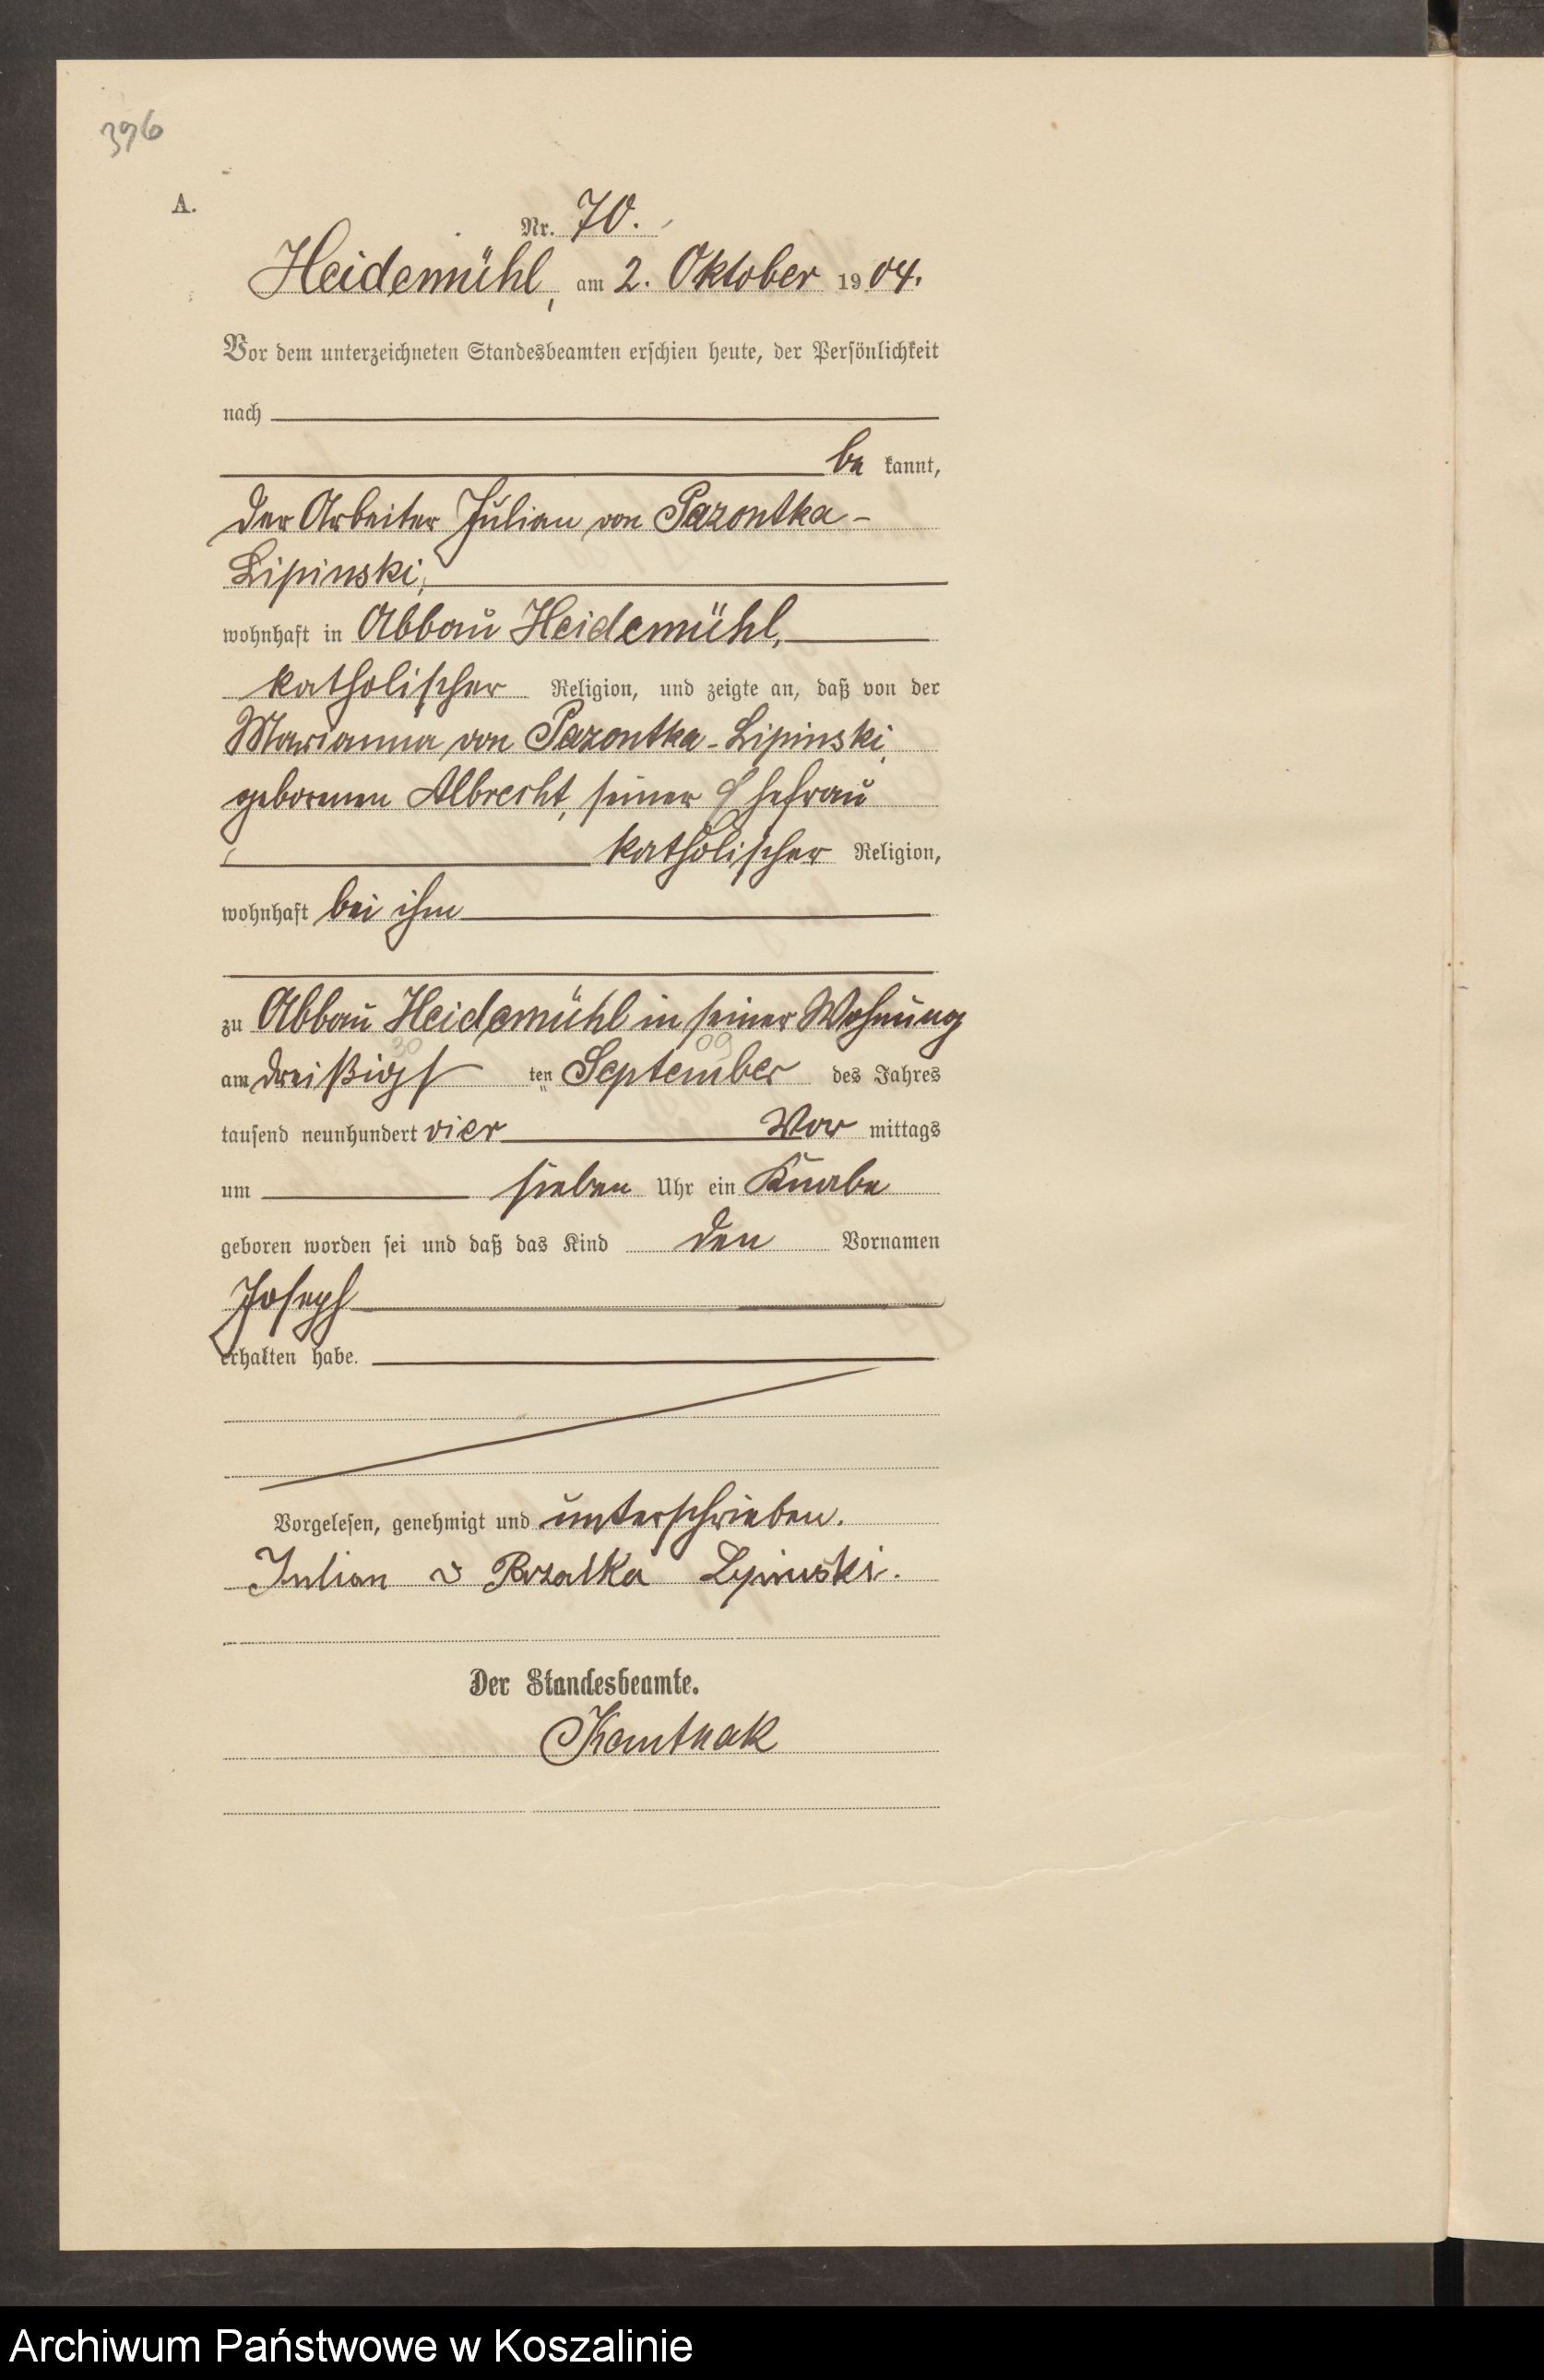 396
A.
Nr. 70.
Heidemühl, am 2. Oktober 1904.
Vor dem unterzeichneten Standesbeamten erschien heute, der Persönlichkeit
nach
be kannt,
der Arbeiter Julian von Pazontka-
Lipinski,
wohnhaft in Abbau Heidemühl,
katholischer Religion, und zeigte an, daß von der
Marianna von Pazontka-Lipinski,
geborenen Albrecht, seiner Ehefrau
katholischer Religion,
wohnhaft bei ihm
zu Abbau Heidemühl in seiner Wohnung
30 09
am dreißigsten September des Jahres
tausend neunhundert vier Vor mittags
um sieben Uhr ein Knabe
geboren worden sei und daß das Kind den Vornamen
Joseph
erhalten habe.
Vorgelesen, genehmigt und unterschrieben.
Julian v Lipinski.
Der Standesbeamte.
Kantnak
Archiwum Państwowe w Koszalinie